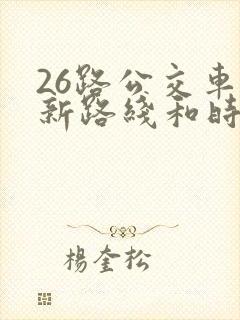 26路公交車
新路綫和時
楊奎松